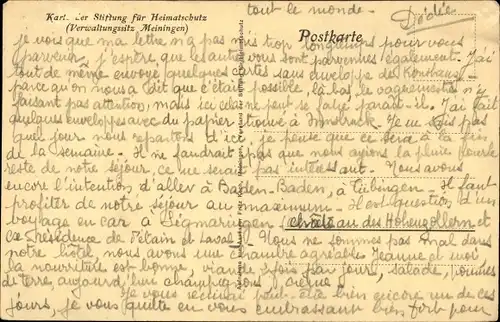 tout le monde.
Dédée
Karte der Stiftung für Heimatschutz
(Verwaltungssitz Meiningen)
Postkarte
je vois que ma lettre n'a pas mis trop longtemps pour vous
parvenir. J'espère que les autres vous sont parvenues également. J'ai
tout de même envoyé quelques cartes sans enveloppe de
parce qu'on nous a dit que c'était possible, là-bas le
faisant pas attention, mais ici cela ne peut se faire paraît-il. J'ai fait
quelques enveloppes avec du papier trouvé à Innsbruck. Je ne sais pas
quel jour nous repartons d'ici, je pense que ce sera à la fin
de la semaine. Il ne faudrait pas que nous ayions la pluie pour le
reste de notre séjour, ce ne serait pas intéressant. Nous avons
encore l'intention d'aller à Baden-Baden, à Tübingen. Il faut
profiter de notre séjour au maximum. Il est question d'un
voyage en car à Sigmaringen (château des Hohenzollern et
résidence de Pétain et Laval). Nous ne sommes pas mal dans
notre hôtel, nous avons une chambre agréable Jeanne et moi
la nourriture est bonne, viande 2 fois par jour, salade, pommes
de terre, aujourd'hui champignons
Je vous récrirai peut-être bien encore un de ces
jours, je vous quitte en vous embrassant bien fort pour